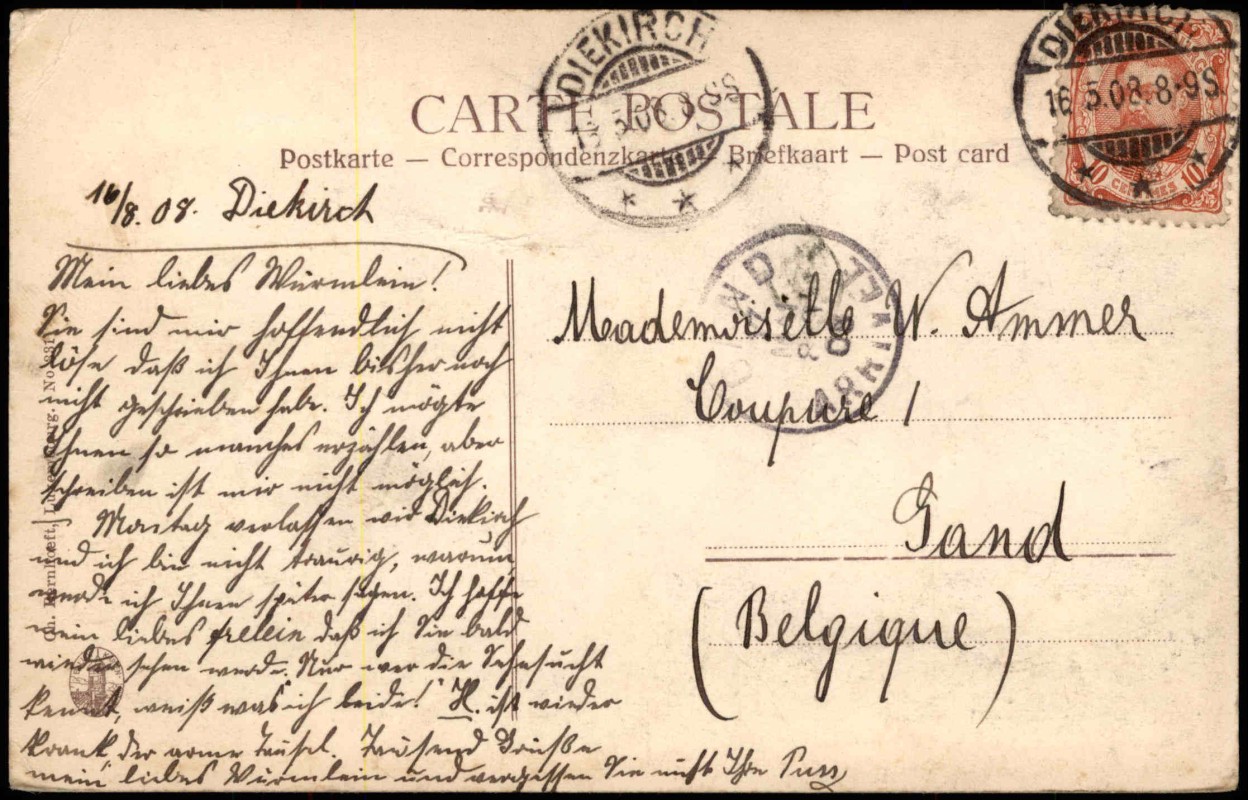 CARTE POSTALE
Postkarte — Correspondenzkarte — Briefkaart — Post card
DIEKIRCH
5.08
DIEKIRCH
16.5.08.8-9S
10 CENTIMES 10
16/8.08. Diekirch
Mein liebes Würmlein!
Sie sind mir hoffendlich nicht
böse daß ich Ihnen bisher noch
nicht geschrieben habe. Ich mögte
Ihnen so manches erzählen, aber
schreiben ist mir nicht möglich.
Montag verlassen wir Diekirch
und ich bin nicht traurig, warum
werde ich Ihnen später sagen. Ich hoffe
mein liebes frellein daß ich Sie bald
wieder sehen werde. "Nur wer die Sehnsucht
kennt, weiß was ich leide!" H. ist wieder
krank, der arme Teufel. Tausend Grüße
mein liebes Würmlein und vergessen Sie nicht Ihre
GAND
Mademoiselle W. Ammer
Coupure 1
Gand
(Belgique)
Ch. Bernhoeft, Luxembourg. No.